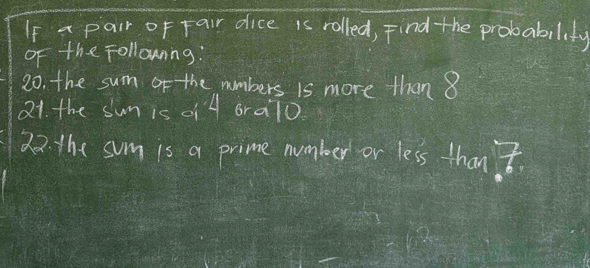 IF a pair of Fair dice is rolled, Find the probability
OF the Following:
20. the sum OF the numbers is more than 8
21. the sum is a 4 or a 10.
22. the sum is a prime number or less than 7.